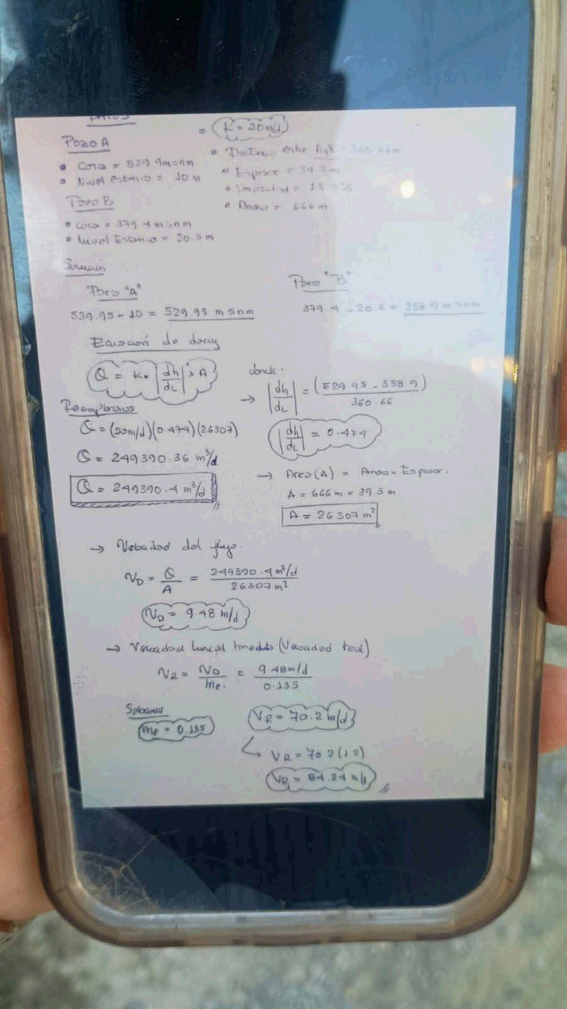 K = 20 m/d
POZO A
• Cota = 539.9 msnm
• Nivel Estático = 10 m
Pozo B
• Cota = 379.4 msnm
• Nivel Estático = 20.5 m
• Espesor = 39.5 m
• Ancho = 666 m
Pozo "A"
539.95 - 10 = 529.95 msnm
Pozo "B"
379.4 - 20.5 = 358.9 msnm
Ecuación de darcy
Q = K * |dh/dL| * A
donde:
→ |dh/dL| = (529.95 - 358.9) / 360.66
|dh/dL| = 0.474
Q = (20m/d)(0.474)(26307)
Q = 249390.36 m³/d
Q = 249390.4 m³/d
→ Area(A) = Ancho x Espesor.
A = 666 m x 39.5 m
A = 26307 m²
→ Velocidad del flujo.
VD = Q/A = 249390.4 m³/d / 26307 m²
VD = 9.48 m/d
→ Velocidad lineal media (Velocidad real)
VR = VD/me = 9.48 m/d / 0.135
Sabemos
me = 0.135
VR = 70.2 m/d
↳ VR = 70.2 (1.2)
VR = 84.24 m/d